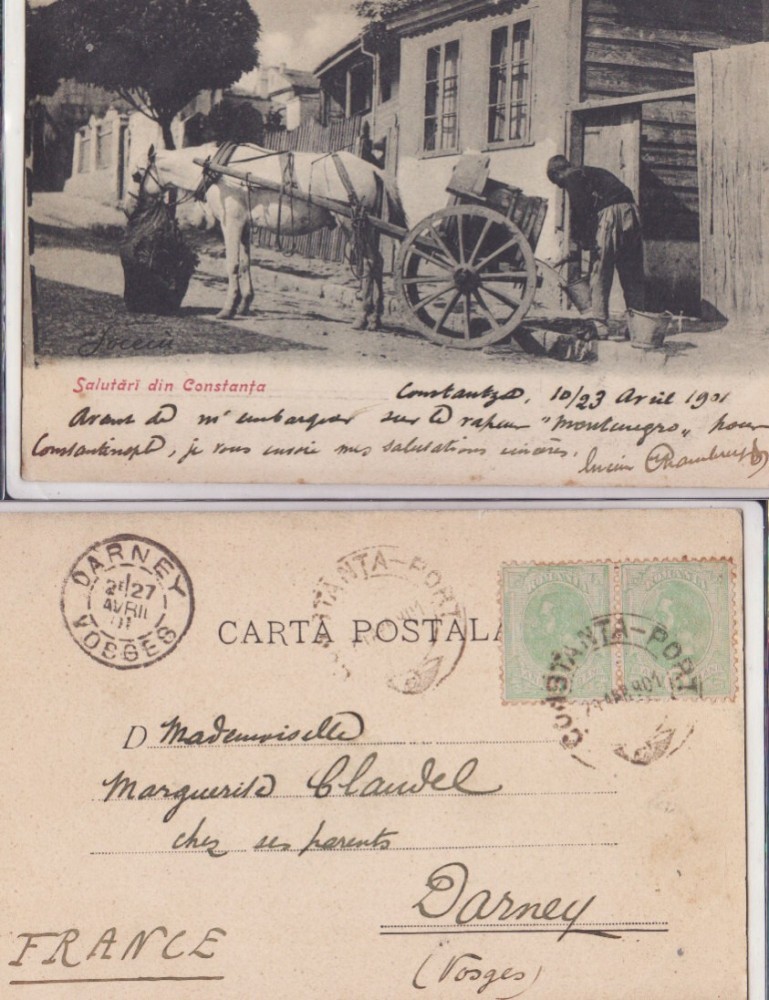 Salutări din Constanța
Constantza, 10/23 Avril 1901
Avant de m'embarquer sur le vapeur "Montenegro" pour
Constantinople, je vous envoie mes salutations sincères.
Lucien
DARNEY
2E/27
AVRIL
01
VOSGES
CONSTANTA-PORT
CARTA POSTALA
ROMANIA
5
ROMANIA
5
CONSTANTA-PORT
901
D Mademoiselle
Marguerite Claudel
chez ses parents
Darney
FRANCE
(Vosges)